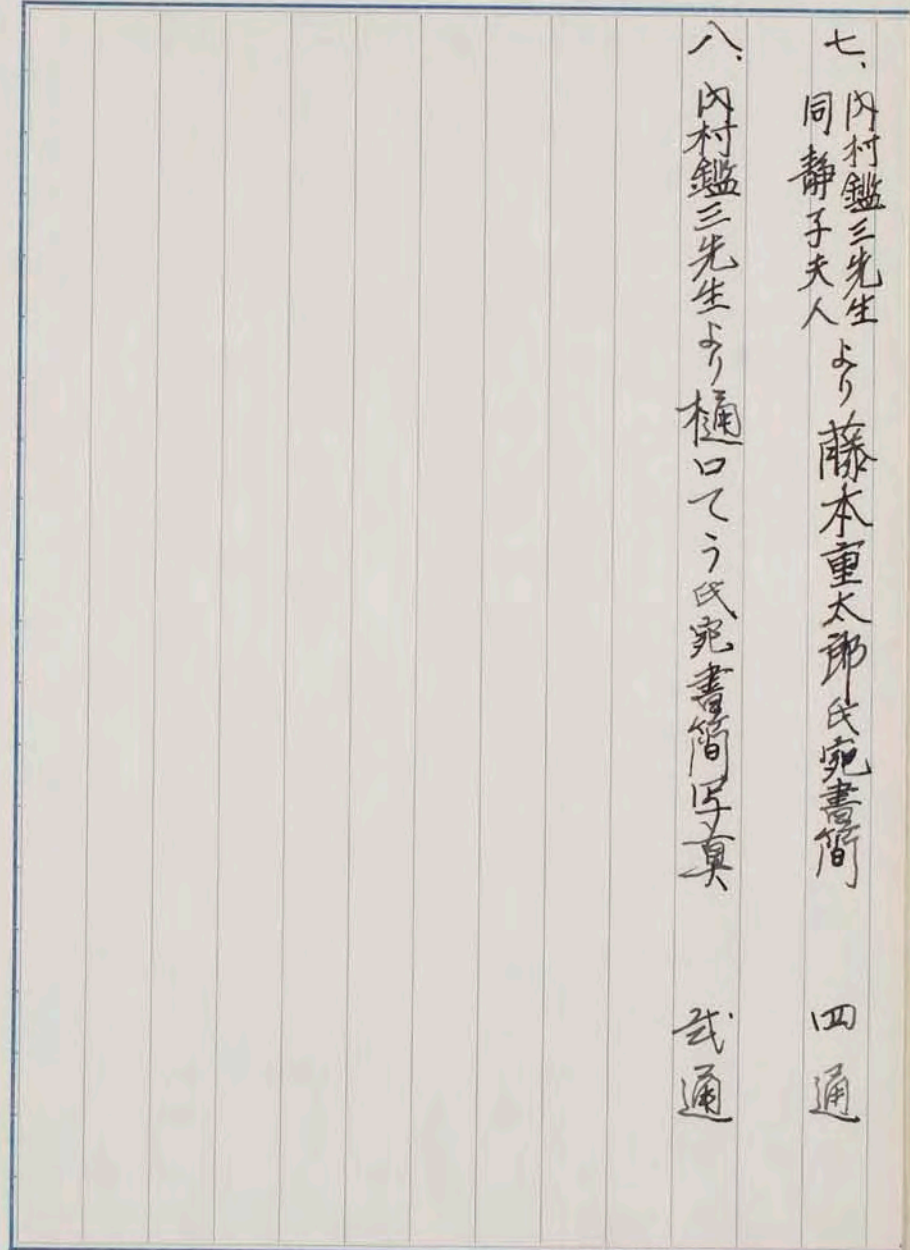 七、内村鑑三先生
同静子夫人より藤本重太郎氏宛書簡 四通
八、内村鑑三先生より樋口てう氏宛書簡写真 弐通